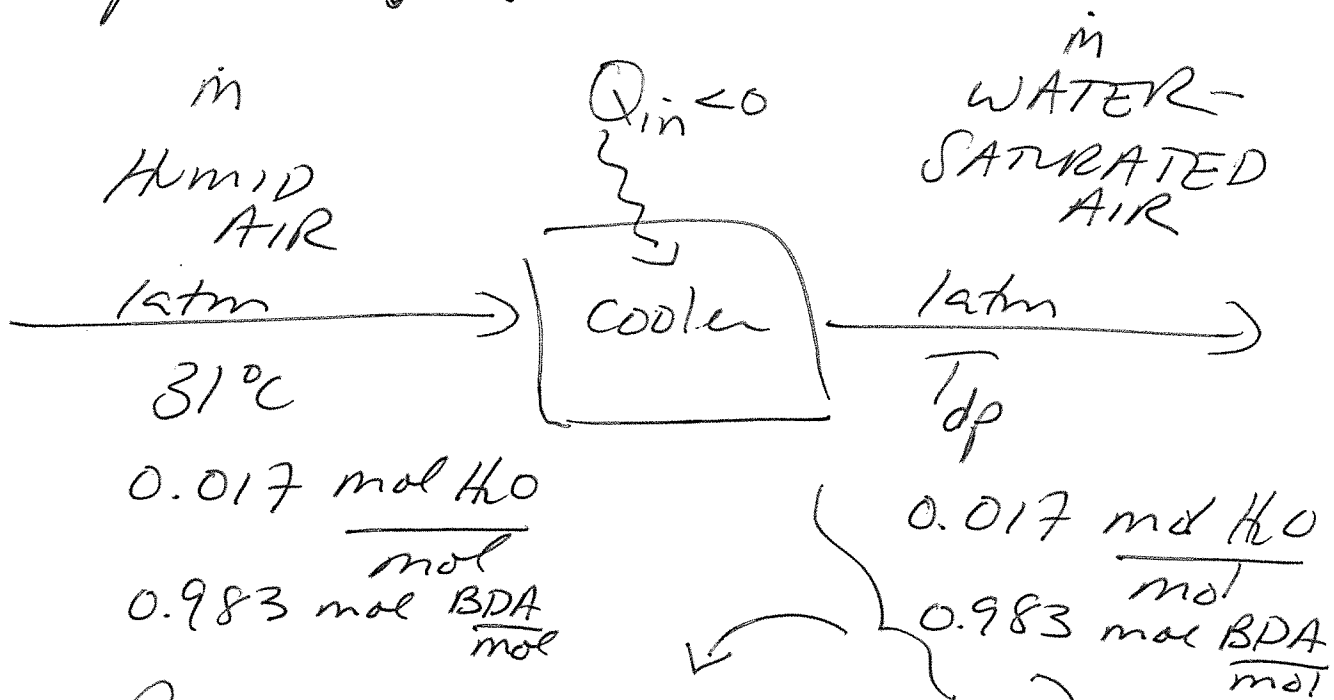 ṁ
HUMID
AIR
1atm
31°C
0.017 mol H2O
mol
0.983 mol BDA
mol
Qin <0
cooler
ṁ
WATER-
SATURATED
AIR
1atm
Tdp
0.017 mol H2O
mol
0.983 mol BDA
mol